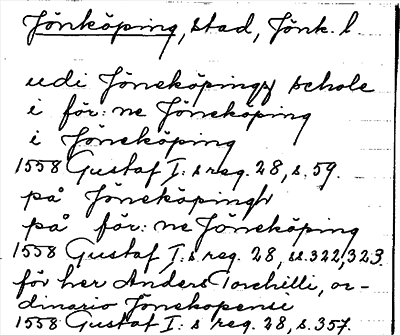 Jönköping, stad, Jönk. l.
udi Jöneköpings schole
i för: ne Jöneköping
i Jöneköping
1558 Gustaf I: s reg. 28, s. 59.
på Jöneköping
på för: ne Jöneköping
1558 Gustaf I: s reg. 28, ss. 322, 323.
för her Anders Torchilli, or-
dinario Jönekopensi
1558 Gustaf I: s reg. 28, s. 357.